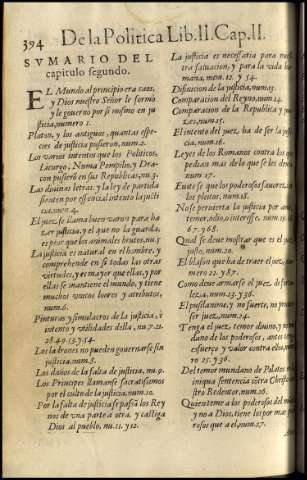 394 De la Politica Lib.II.Cap.II.
SVMARIO DEL
capitulo segundo.
EL Mundo al principio era caos,
y Dios nuestro Señor le formò
y le governo por si mismo en ju
sticia, numero 1.
Platon, y los antiguos, quantas espe
cies de justicia pusieron, num.2.
Los varios intentos que los Politicos,
Licurgo, Numa Pompilo, y Dra
con pusierõ en sus Republicas, nu.3.
Las divinas letras, y la ley de partida
sienten por essencial intento la justi
cia, num.4.
El juez, se llama buen varon para ha
zer justicia, y el que no la guarda,
es peor que los animales brutos, nu.5
La justicia es natural en el hombre, y
comprehende en si todas las otras
virtudes, y es mayor que ellas, y por
ellas se mantiene el mundo, y tiene
muchos vocablos y atributos,
num.6.
Pinturas y simulacros de la justicia, è
intento y utilidades della, nu.7.21.
28.49.53.y 54.
Las ladrones no pueden governarse sin
justicia, num.8.
Los daños de la falta de justicia, nu.9.
Los Principes llamanse sacratissimos
por el culto de la justicia, num.10.
Por la falta de justicia se passã los Rey
nos de una parte a otra, y castiga
Dios al pueblo, nu.11. y 12.
La justicia es necessaria para nues
tra salvacion, y para la vida hu
mana, num. 12. y 54.
Difinicion de la justicia, num.13.
Comparacion del Reyno, num.14.
Comparacion de la Republica y jue
zes, num.15.
El intento del juez, ha de ser la justi
cia, num.16.
Leyes de los Romanos contra los que
pedian mas de lo que se les devia,
num.17.
Evitese que los poderosos favorezcan
los pleitos, num.18.
No se pervierta la justicia por amor,
temor, odio, o interesse. num.
67. y 68.
Qual se deve mostrar que es el po
num.20.
El blason que ha de traer el juez, nu-
mero 22. y 87.
Como deve armarse el juez, de fortale
za, num.23. y 36.
El pusilanimo, y no fuerte, no procure
ser juez, num.24.
Tenga el juez, temor divino, y no mun
dano de los poderosos, antes tenga
esfuerço y valor contra ellos, nume-
ro 25. y 36.
Del temor mundano de Pilatos
iniqua sentencia cõtra Christo nue
stro Redentor, num.26.
Quien teme a los poderosos del mũdo,
y no a Dios, tiene los por mas po
rosos que a el, num.27.